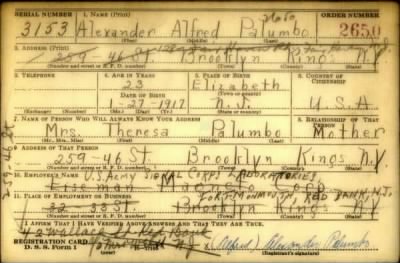 SERIAL NUMBER 1. NAME (Print) ORDER NUMBER
3153 Alexander Alfred Palumbo 2650
2. ADDRESS (Print)
259 - 46 St. Brooklyn Kings N.Y.
(Number and street or R. F. D. number) (Town) (County) (State)
3. TELEPHONE 4. AGE IN YEARS 5. PLACE OF BIRTH 6. COUNTRY OF CITIZENSHIP
23 Elizabeth
DATE OF BIRTH (Town or county)
1-27-1917 N.J. U.S.A.
(Exchange) (Number) (Mo.) (Day) (Yr.) (State or country)
7. NAME OF PERSON WHO WILL ALWAYS KNOW YOUR ADDRESS 8. RELATIONSHIP OF THAT PERSON
Mrs. Theresa Palumbo Mother
(Mr., Mrs., Miss) (First) (Middle) (Last)
9. ADDRESS OF THAT PERSON
259-46 St. Brooklyn Kings N.Y.
(Number and street or R. F. D. number) (Town) (County) (State)
259-46 St
10. EMPLOYER'S NAME U.S. ARMY SIGNAL CORPS LABORATORIES
Eiseman Magneto Corp.
11. PLACE OF EMPLOYMENT OR BUSINESS FORT MONMOUTH, RED BANK, N.J.
32-33 St. Brooklyn Kings N.Y.
(Number and street or R. F. D. number) (Town) (County) (State)
I AFFIRM THAT I HAVE VERIFIED ABOVE ANSWERS AND THAT THEY ARE TRUE.
42 Wallace St. Red Bank
REGISTRATION CARD
D. S. S. Form 1 x (Alfred) Alexander Palumbo